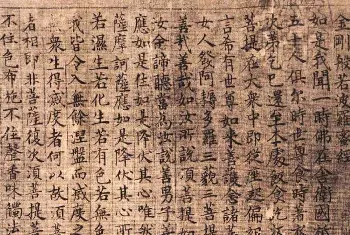 金剛般若波羅蜜經
如是我聞一時佛在舍衛國祇
五十人俱尔時世尊食時著
次第乞已還至本處飯食訖
菩提在大衆中即從座起偏袒
言希有世尊如来善護念諸菩
女人發阿耨多羅三藐三菩提
善哉善哉如汝所說須菩提如
汝今諦聽當為汝說善男子善
應如是住如是降伏其心唯然
薩摩訶薩應如是降伏其心所
若濕生若化生若有色若無色
我皆令入無餘涅槃而滅度之
衆生得滅度者何以故須菩
者相即非菩薩復次須菩提菩
不住色布施不住聲香味觸法